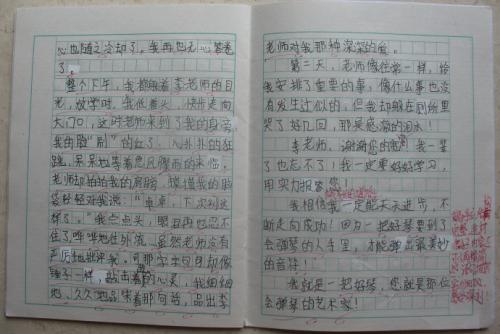 心也随之冷却了。我再也无心答卷
了。
整个下午，我都躲着李老师的目
光，放学时，我低着头，快步走向
大门口，这时老师来到了我的身旁，
我的脸“刷”的红了，心扑扑的狂
跳，呆呆地等着暴风骤雨的来临。
老师却拍拍我的肩膀，摸摸我的脑
袋轻轻对我说：“卓卓，下次别这
样了。”我点点头，眼泪再也忍不
住了哗哗地往外流。虽然老师没有
严厉地批评我，可那字字句句却像
锤子一样，敲击着我的心灵，我细细
地、久久地品味着那句话，品出李
老师对我那种深深的爱。
第二天，老师像往常一样，给
我安排了重要的事，像什么事也没
有发生过似的，但我却躲在厕所里
哭了好几回，那是感激的泪水！
李老师，谢谢您的爱，我一辈
子也忘不了！我一定要好好学习，
用实力报答您！
我相信我一定能天天进步，不
断走向成功！因为一把好琴要到了
会弹琴的人手里，才能弹出最美妙
的音符！
我就是一把好琴，您就是那位
会弹琴的艺术家！